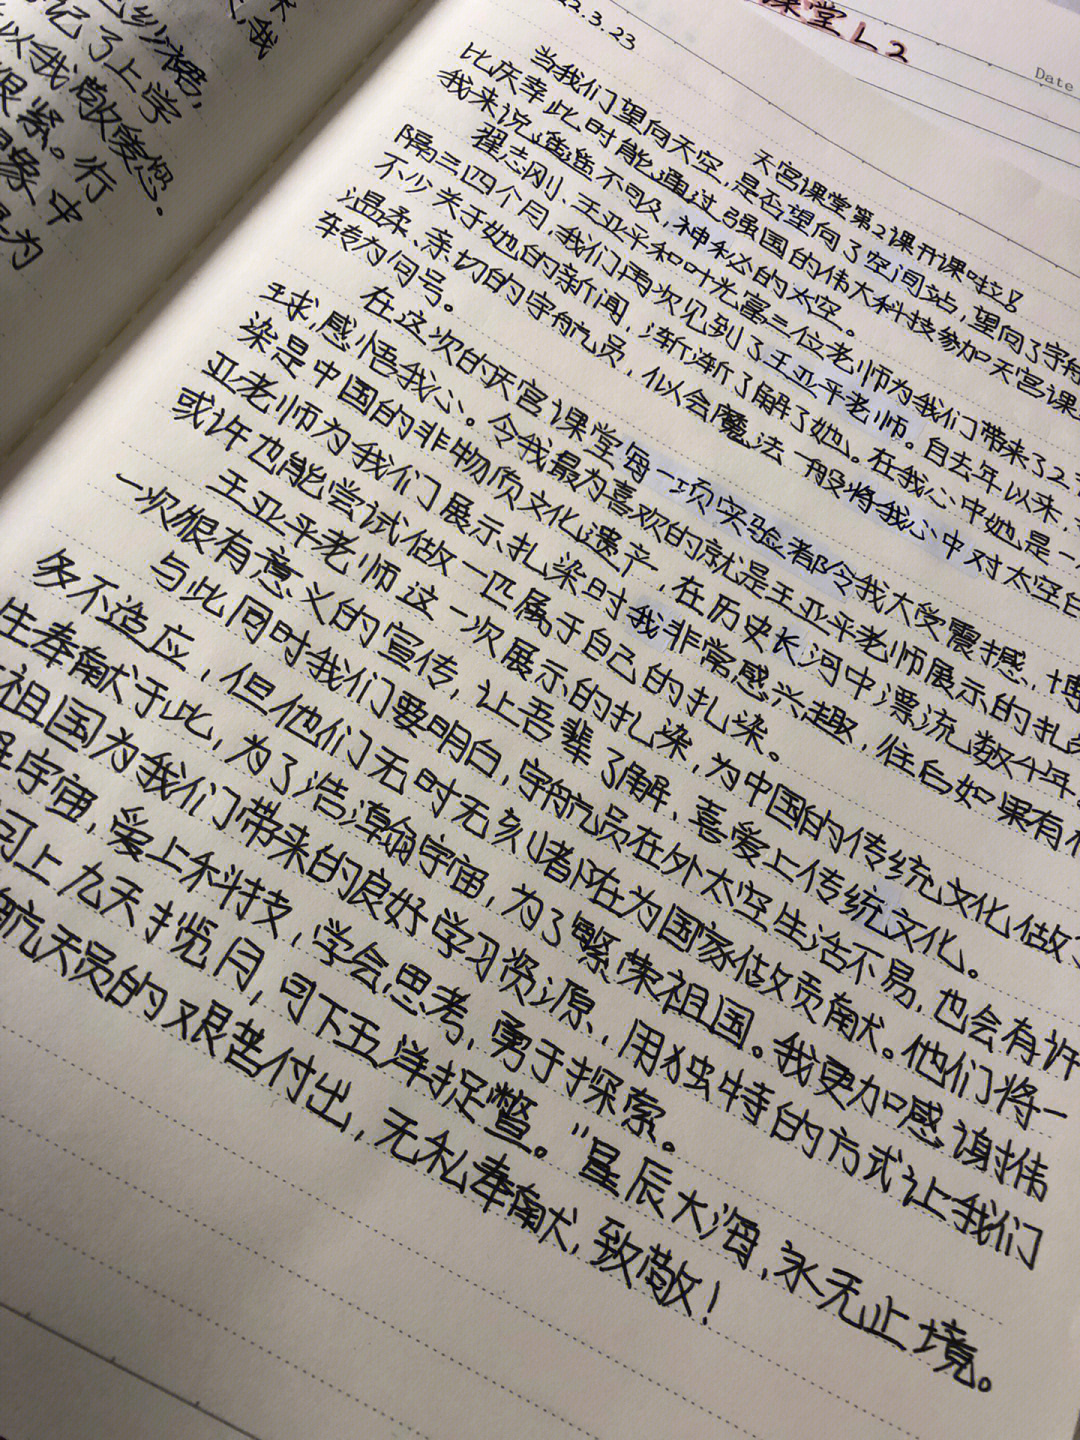 课堂 L2
Date
22.3.23
天宫课堂第2课开课啦!
当我们望向天空,是否望向了空间站,望向了宇
比庆幸此时能通过强国的伟大科技参加天宫课
我来说遥遥不可及,神秘的太空。
翟志刚、王亚平和叶光富三位老师为我们带来了2
隔三四个月,我们再次见到了王亚平老师。自去年以来,
不少关于她的新闻,渐渐了解了她。在我心中她是一
温柔、亲切的宇航员,似会魔法一般将我心中对太空
转为问号。
在这次的天宫课堂每一项实验者都令我大受震撼,博
球,感悟我心。令我最为喜欢的就是王亚平老师展示的扎
染是中国的非物质文化遗产,在历史长河中漂流数千年
亚老师为我们展示扎染时我非常感兴趣,往后如果有
或许也能尝试做一匹属于自己的扎染。
王亚平老师这一次展示的扎染,为中国的传统文化做
一次很有意义的宣传,让吾辈了解,喜爱上传统文化。
与此同时我们要明白,宇航员在外太空生活不易,也会有许
多不适应,但他们无时无刻都在为国家做贡献。他们将一
生奉献于此,为了浩瀚宇宙,为了繁荣祖国。我更加感谢伟
祖国为我们带来的良好学习资源,用独特的方式让我们
宇宙,爱上科技,学会思考,勇于探索。
可上九天揽月,可下五洋捉鳖。"星辰大海,永无止境。
航天员的艰苦付出,无私奉献,致敬!
记了上学
以我敬爱您。
很紧。行
象,中
为
我